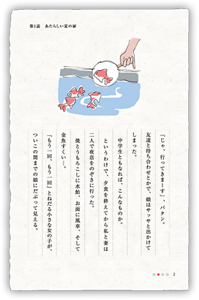 第1話　あたらしい家の扉
「じゃ、行ってきまーす」、バタン。
友達と待ち合わせとかで、娘はサッサと出かけて
しまった。
中学生ともなれば、こんなものか。
というわけで、夕食を終えてから私と妻は
二人で夜店をのぞきに行った。
焼とうもろこしに水飴、お面に風車、そして
金魚すくい…。
「もう一回、もう一回」とねだる小さな女の子が、
ついこの間までの娘にだぶって見える。
2